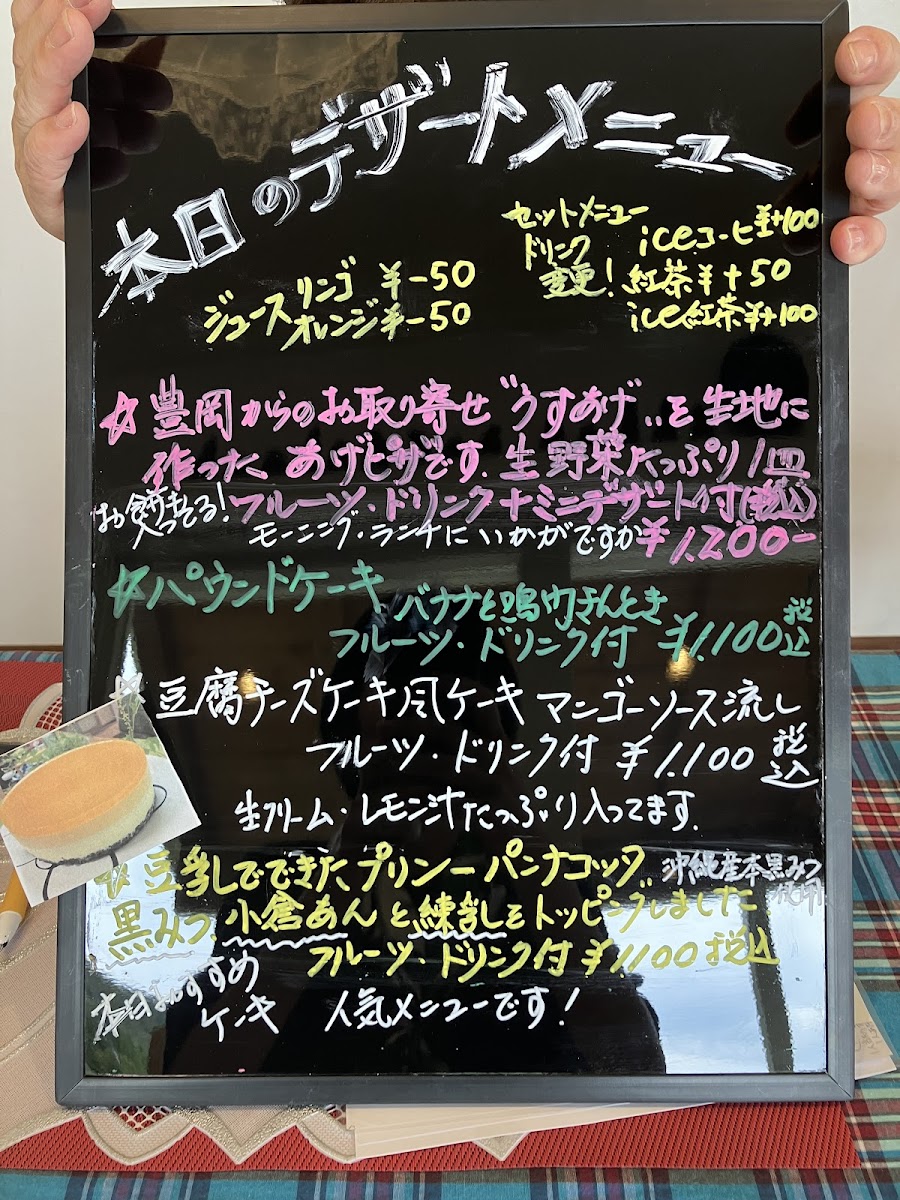 本日のデザートメニュー
セットメニュー
ドリンク
変更!
iceコーヒ¥+100
紅茶¥+50
ice紅茶¥+100
ジュース
リンゴ ¥-50
オレンジ¥-50
☆豊岡からのお取り寄せ"うすあげ"を生地に
作った、あげピザです.生野菜たっぷり1皿
フルーツ・ドリンク+ミニデザート付(税込)
お餅も
入ってる!
モーニング・ランチにいかがですか ¥1,200-
☆パウンドケーキ
バナナと鳴門きんとき
フルーツ・ドリンク付 ¥1,100 税込
☆豆腐チーズケーキ風ケーキ マンゴーソース流し
フルーツ・ドリンク付 ¥1,100 税込
生クリーム・レモン汁たっぷり入ってます.
☆豆乳でできたプリンーパンナコッタ
沖縄産本黒みつ
使用
黒みつ、小倉あんと練乳をトッピングしました
フルーツ・ドリンク付 ¥1100 税込
本日おすすめ
ケーキ
人気メニューです!